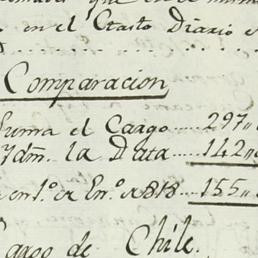 en el Gasto Diario
Comparacion
Suma el Cargo ..... 297,,
Ydm. la Data ..... 142,,
en 1.º de En.º de 1818 .. 155,,
Cargo de Chile.